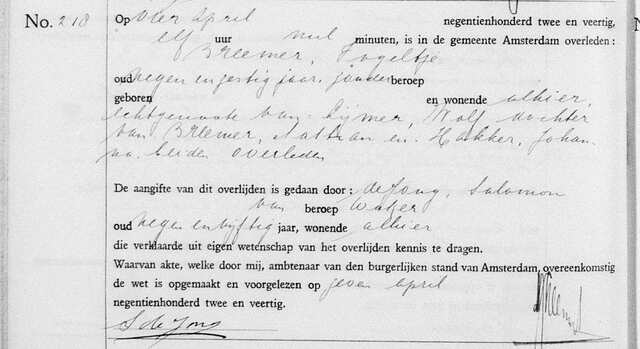 No. 218
Op vier april negentienhonderd twee en veertig,
elf uur nul minuten, is in de gemeente Amsterdam overleden:
Breemer, Vogeltje
oud negen en zestig jaar, zonder beroep
geboren en wonende alhier,
echtgenoote van: Lijmer, Wolf dochter
van Breemer, Nathan en Hakker, Johan-
na, beiden overleden
De aangifte van dit overlijden is gedaan door: de Jong, Salomon
van beroep waker
oud negen en vijftig jaar, wonende alhier
die verklaarde uit eigen wetenschap van het overlijden kennis te dragen.
Waarvan akte, welke door mij, ambtenaar van den burgerlijken stand van Amsterdam, overeenkomstig
de wet is opgemaakt en voorgelezen op zeven april
negentienhonderd twee en veertig.
S de Jong